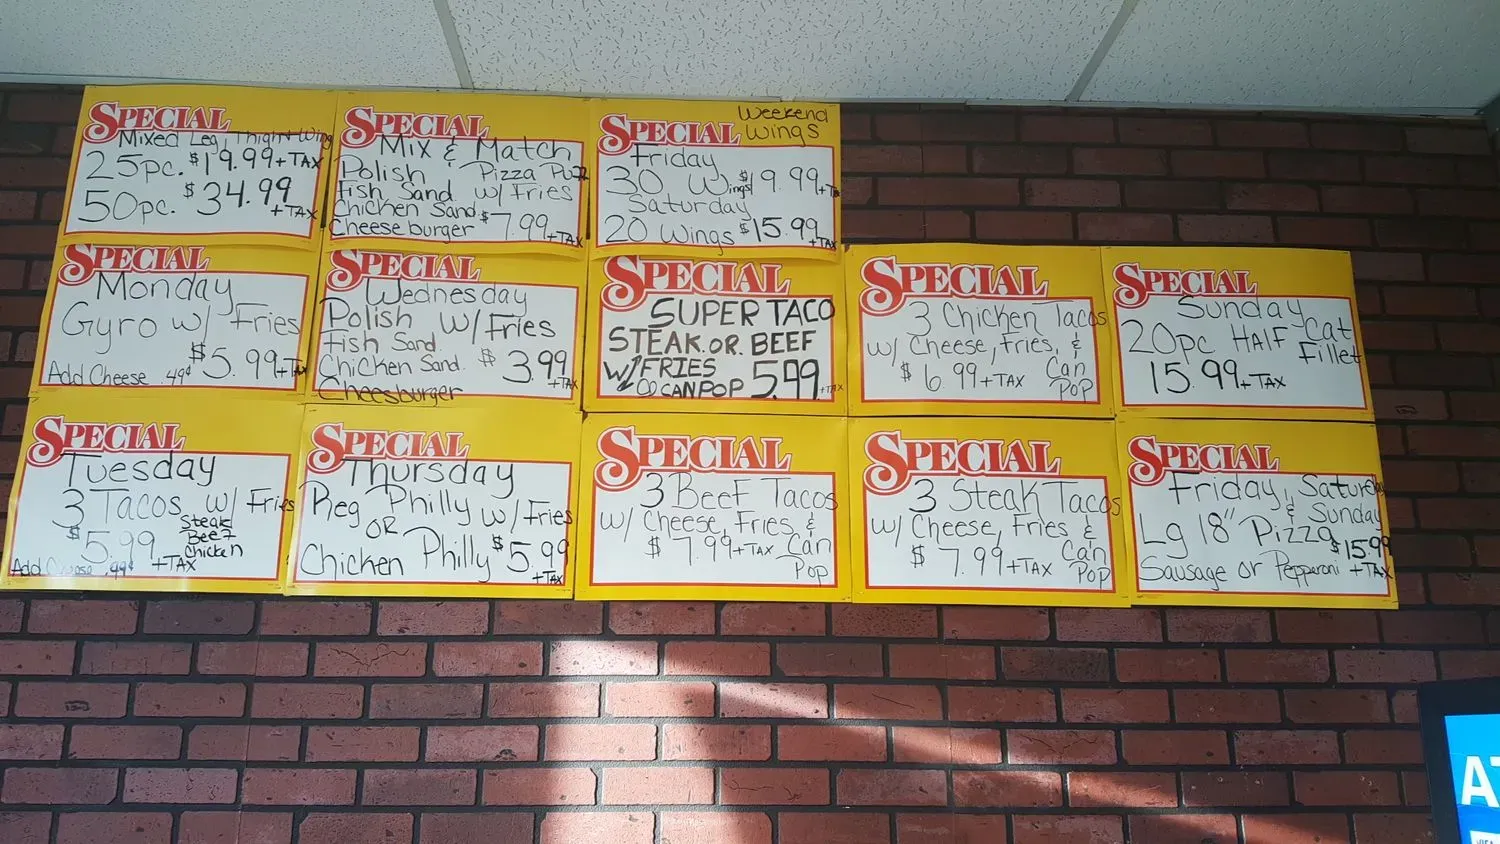 SPECIAL
Mixed Leg, Thigh + Wing
25pc. $19.99 + TAX
50pc. $34.99
+ TAX
SPECIAL
Mix & Match
Polish Pizza Puff
Fish Sand w/ Fries
Chicken Sand $7.99 + TAX
Cheeseburger
SPECIAL Weekend Wings
Friday
30 Wings $19.99 + Tax
Saturday
20 Wings $15.99 + TAX
SPECIAL
Monday
Gyro w/ Fries
$5.99 + Tax
Add Cheese .49¢
SPECIAL
Wednesday
Polish w/ Fries
Fish Sand
Chicken Sand. $3.99
+ TAX
Cheesburger
SPECIAL
SUPER TACO
STEAK. OR. BEEF
W/FRIES
CAN POP 5.49 + TAX
SPECIAL
3 Chicken Tacos
w/ Cheese, Fries, &
$6.99 + TAX Can
Pop
SPECIAL
Sunday
20pc HALF Cat
Fillet
15.99 + TAX
SPECIAL
Tuesday
3 Tacos w/ Fries
$5.99 Steak
Beef
Chicken
+ TAX
Add Cheese .99¢
SPECIAL
Thursday
Reg Philly w/ Fries
OR
Chicken Philly $5.99
+ TAX
SPECIAL
3 Beef Tacos
w/ Cheese, Fries &
$7.99 + TAX Can
Pop
SPECIAL
3 Steak Tacos
w/ Cheese, Fries &
$7.99 + TAX Can
Pop
SPECIAL
Friday, Saturday
& Sunday
Lg 18" Pizza $15.99
Sausage or Pepperoni + TAX
A